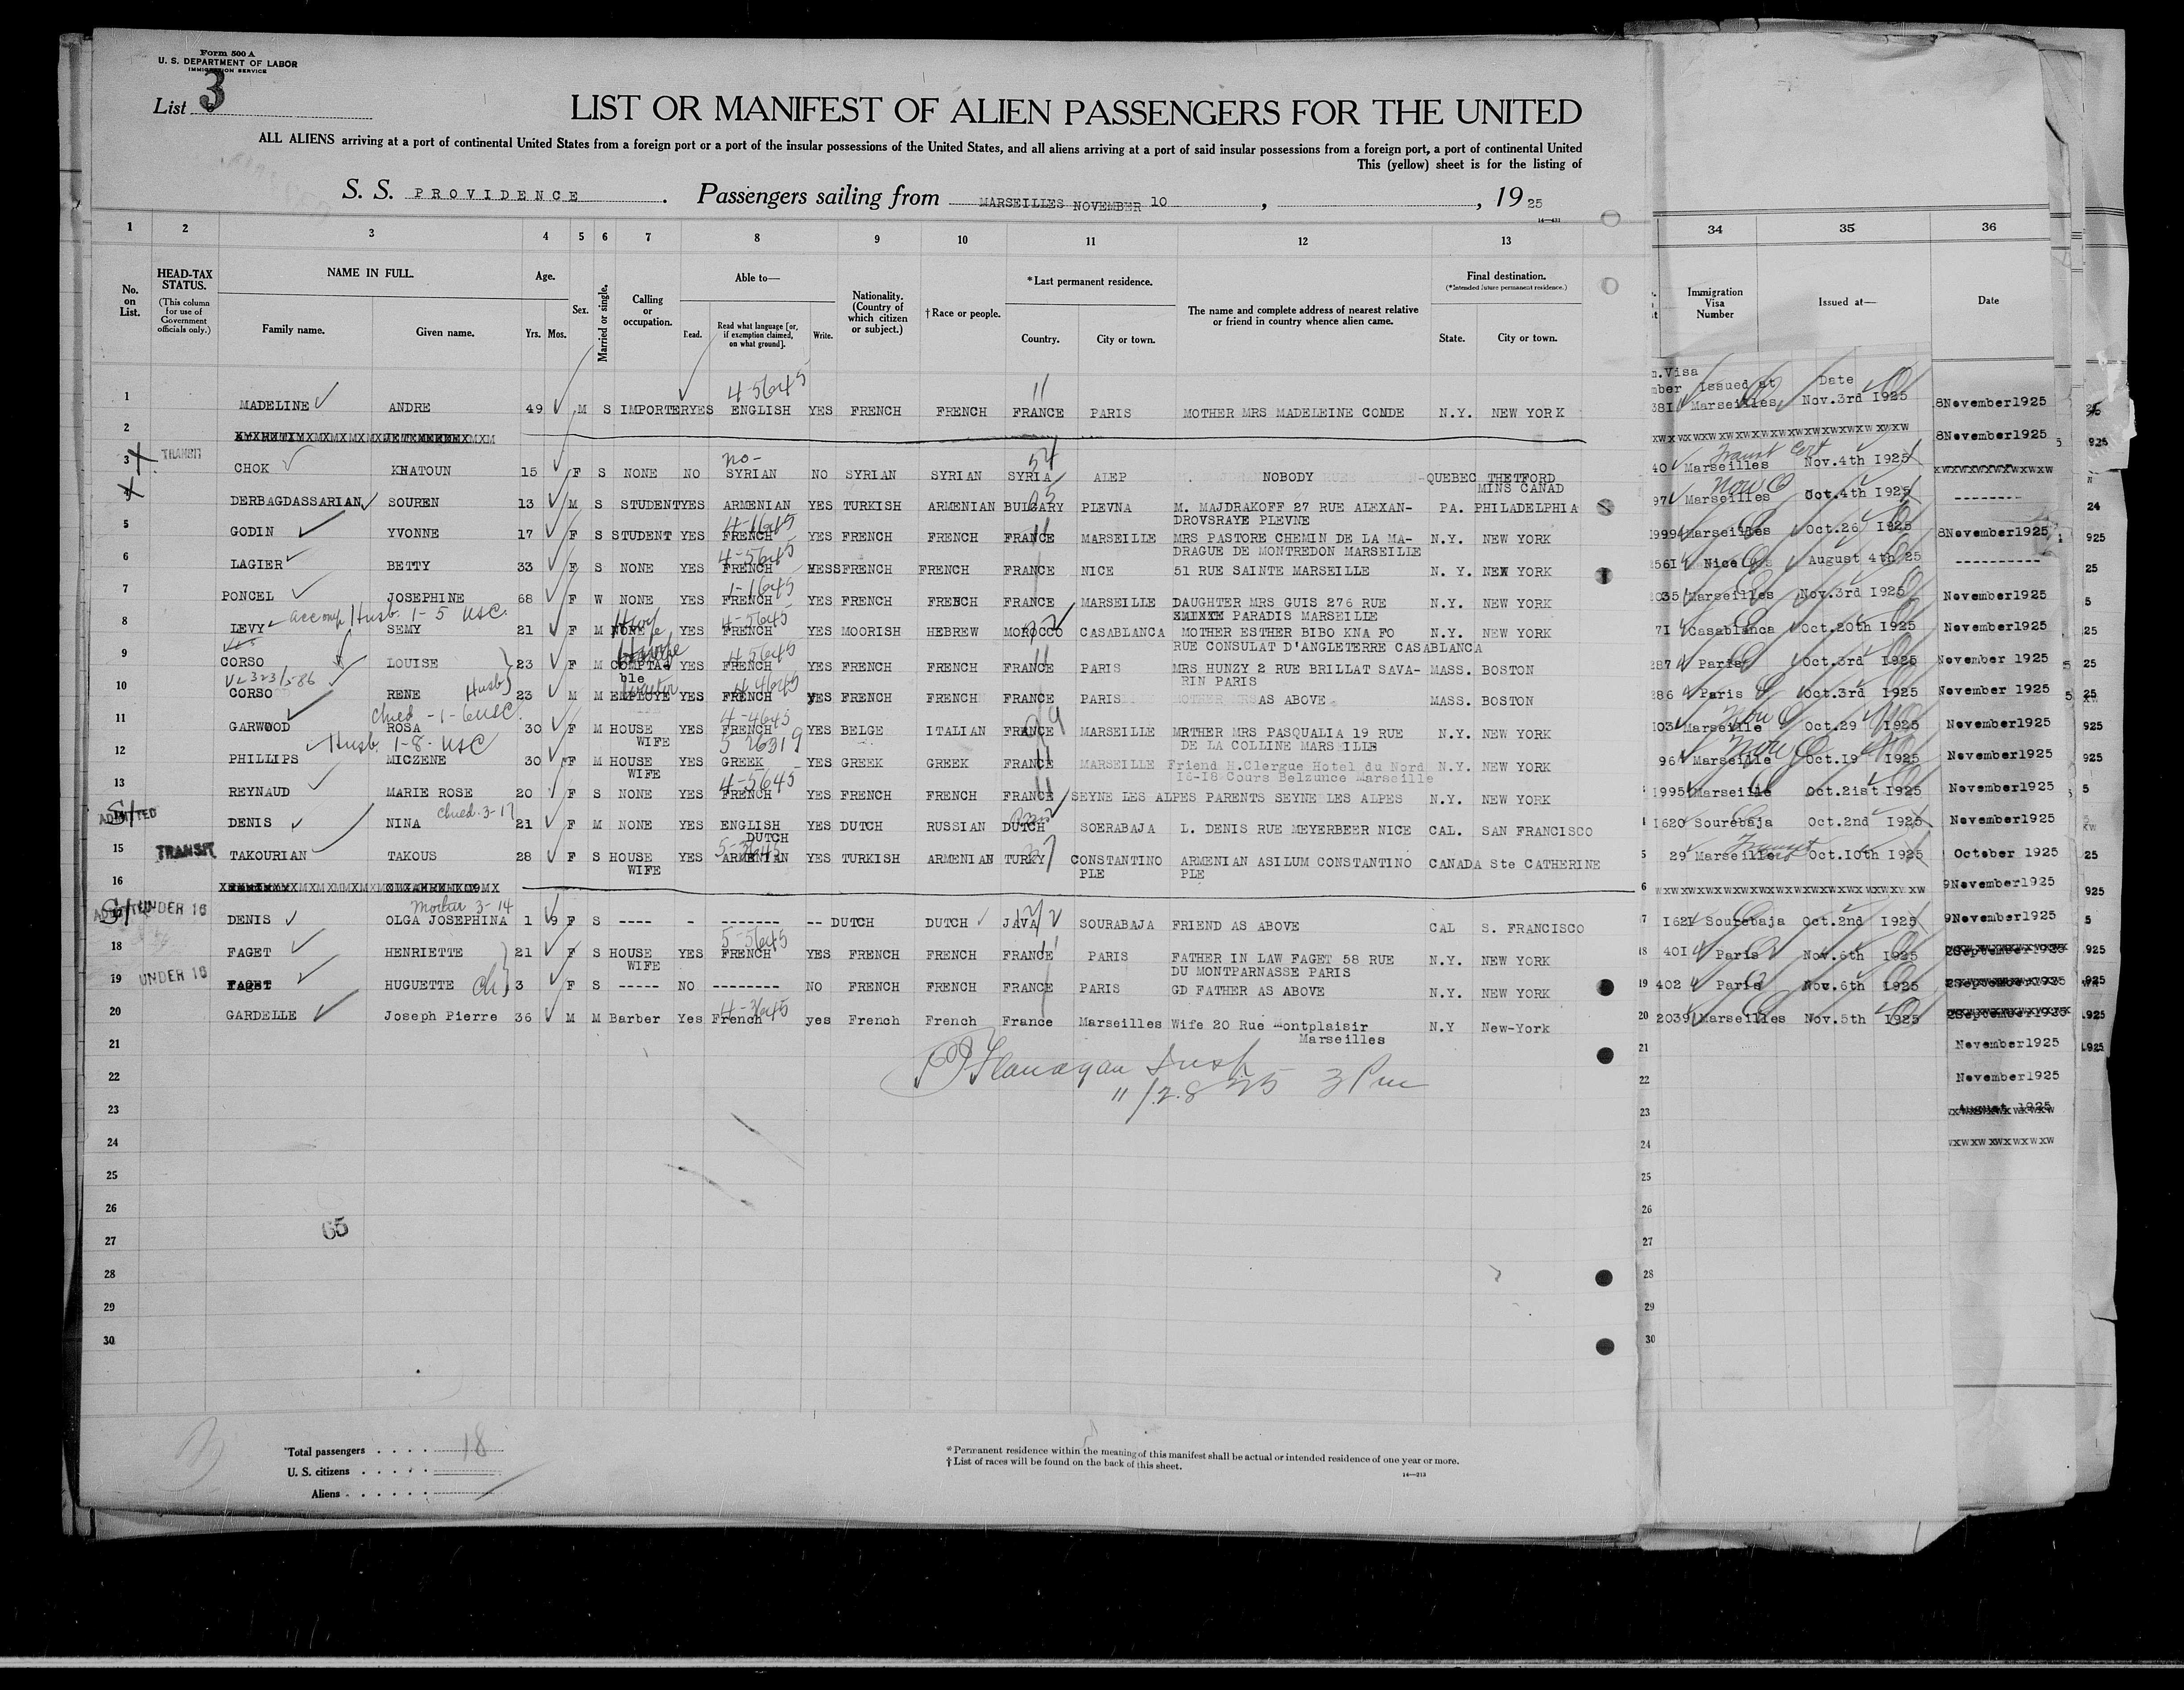 Form 500 A
U. S. DEPARTMENT OF LABOR
IMMIGRATION SERVICE
List 3
LIST OR MANIFEST OF ALIEN PASSENGERS FOR THE UNITED
ALL ALIENS arriving at a port of continental United States from a foreign port or a port of the insular possessions of the United States, and all aliens arriving at a port of said insular possessions from a foreign port, a port of continental United
This (yellow) sheet is for the listing of
S. S. PROVIDENCE . Passengers sailing from MARSEILLES NOVEMBER 10 , , 19 25
14—431
1 2 3 4 5 6 7 8 9 10 11 12 13 34 35 36
No. on List.
HEAD-TAX STATUS.
(This column for use of Government officials only.)
NAME IN FULL.
Family name. Given name.
Age.
Yrs. Mos.
Sex.
Married or single.
Calling or occupation.
Able to—
Read. Read what language [or, if exemption claimed, on what ground]. Write.
Nationality. (Country of which citizen or subject.)
† Race or people.
*Last permanent residence.
Country. City or town.
The name and complete address of nearest relative or friend in country whence alien came.
Final destination.
(*Intended future permanent residence.)
State. City or town.
Immigration Visa Number
Issued at—
Date
Visa Issued at Date
4-5645 11
1 MADELINE ANDRE 49 M S IMPORTER YES ENGLISH YES FRENCH FRENCH FRANCE PARIS MOTHER MRS MADELEINE CONDE N.Y. NEW YORK 381 Marseilles Nov.3rd 1925 8November1925
2 8November1925
3 TRANSIT CHOK KHATOUN 15 F S NONE NO no- SYRIAN NO SYRIAN SYRIAN SYRIA ALEP NOBODY QUEBEC THETFORD MINS CANAD 40 Marseilles Transit Cert Nov.4th I925
DERBAGDASSARIAN SOUREN 13 M S STUDENT YES ARMENIAN YES TURKISH ARMENIAN BULGARY PLEVNA M. MAJDRAKOFF 27 RUE ALEXAN-
DROVSRAYE PLEVNE PA. PHILADELPHIA 97 Marseilles Oct.4th I925 --------
5 GODIN YVONNE 17 F S STUDENT YES FRENCH YES FRENCH FRENCH FRANCE MARSEILLE MRS PASTORE CHEMIN DE LA MA-
DRAGUE DE MONTREDON MARSEILLE N.Y. NEW YORK 1999 Marseilles Oct.26 I925 8November1925
6 LAGIER BETTY 33 F S NONE YES 4-5645 FRENCH FRENCH FRENCH FRANCE NICE 51 RUE SAINTE MARSEILLE N. Y. NEW YORK 561 Nice August 4th 25 ----------
7 PONCEL JOSEPHINE 68 F W NONE YES 1-1645 FRENCH YES FRENCH FRENCH FRANCE MARSEILLE DAUGHTER MRS GUIS 276 RUE
PARADIS MARSEILLE N.Y. NEW YORK 2035 Marseilles Nov.3rd I925 November1925
accomp Husb. 1-5 USC.
8 LEVY SEMY 21 F M NONE YES 4-5645 FRENCH YES MOORISH HEBREW MOROCCO CASABLANCA MOTHER ESTHER BIBO KNA FO
RUE CONSULAT D'ANGLETERRE CASABLANCA N.Y. NEW YORK 71 Casablanca Oct.20th I925 November1925
9 CORSO LOUISE 23 F M COMPTABLE YES 4-5645 FRENCH YES FRENCH FRENCH FRANCE PARIS MRS HUNZY 2 RUE BRILLAT SAVA-
RIN PARIS MASS. BOSTON 287 Paris Oct.3rd I925 November 1925
10 CORSO RENE Husb 23 M M EMPLOYE Waiter YES 4-4645 FRENCH YES FRENCH FRENCH FRANCE PARIS AS ABOVE MASS. BOSTON 286 Paris Oct.3rd I925 November 1925
11 GARWOOD ROSA 30 F M HOUSE WIFE YES 4-4645 FRENCH YES BELGE ITALIAN FRANCE MARSEILLE MRTHER MRS PASQUALIA 19 RUE
DE LA COLLINE MARSEILLE N.Y. NEW YORK 103 Marseille Oct.29 I925 November1925
Husb. 1-8- USC
12 PHILLIPS MICZENE 30 F M HOUSE WIFE YES GREEK YES GREEK GREEK FRANCE MARSEILLE Friend H.Clergue Hotel du Nord
I6-I8 Cours Belzunce Marseille N.Y. NEW YORK 96 Marseille Oct.I9 I925 November1925
13 REYNAUD MARIE ROSE 20 F S NONE YES 4-5645 FRENCH YES FRENCH FRENCH FRANCE SEYNE LES ALPES PARENTS SEYNE LES ALPES N.Y. NEW YORK 1995 Marseille Oct.2ist I925 November1925
ADMITTED DENIS NINA 21 F M NONE YES ENGLISH DUTCH YES DUTCH RUSSIAN DUTCH SOERABAJA L. DENIS RUE MEYERBEER NICE CAL. SAN FRANCISCO 1620 Sourebaja Oct.2nd I925 November1925
15 TRANSIT TAKOURIAN TAKOUS 28 F S HOUSE WIFE YES ARMENIAN YES TURKISH ARMENIAN TURKY CONSTANTINO
PLE ARMENIAN ASILUM CONSTANTINO
PLE CANADA Ste CATHERINE 29 Marseille Transit Oct.I0th I925 October 1925
16 9November1925
ADMITTED UNDER 16 DENIS OLGA JOSEPHINA 1 9 F S ---- - ------- -- DUTCH DUTCH JAVA SOURABAJA FRIEND AS ABOVE CAL S. FRANCISCO 7 I62I Sourebaja Oct.2nd I925 9November1925
18 FAGET HENRIETTE 21 F S HOUSE WIFE YES 5-5645 FRENCH YES FRENCH FRENCH FRANCE PARIS FATHER IN LAW FAGET 58 RUE
DU MONTPARNASSE PARIS N.Y. NEW YORK 18 40I Paris Nov.6th I925
19 UNDER 16 FAGET HUGUETTE 3 F S ----- NO -------- NO FRENCH FRENCH FRANCE PARIS GD FATHER AS ABOVE N.Y. NEW YORK 19 402 Paris Nov.6th I925
20 GARDELLE Joseph Pierre 36 M M Barber Yes 4-3645 French yes French French France Marseilles Wife 20 Rue Montplaisir
Marseilles N.Y New-York 20 2039 Marseilles Nov.5th I925
21 21 November1925
22 22 November1925
23 23 August 1925
24 24
25 25
26 26
27 27
28 28
29 29
30 30
Flanagan Insp
11/28 25 3 Pm
65
*Total passengers . . . . 18
U. S. citizens . . . . .
Aliens . . . . . .
* Permanent residence within the meaning of this manifest shall be actual or intended residence of one year or more.
† List of races will be found on the back of this sheet.
14—213